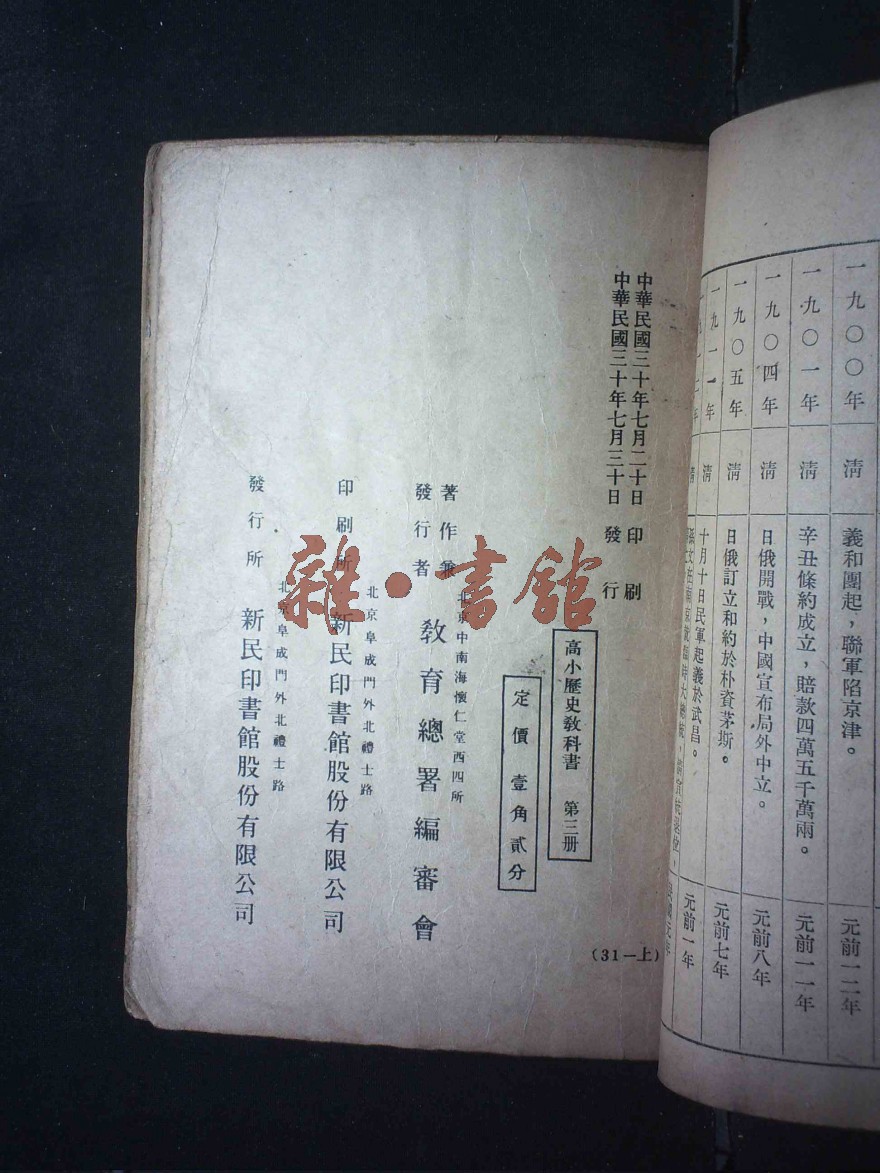 一九〇〇年 清 義和團起，聯軍陷京津。 元前一二年
一九〇一年 清 辛丑條約成立，賠款四萬五千萬兩。 元前一一年
一九〇四年 清 日俄開戰，中國宣布局外中立。 元前八年
一九〇五年 清 日俄訂立和約於朴資茅斯。 元前七年
一九一一年 清 十月十日民軍起義於武昌。 元前一年
中華民國三十年七月二十日 印刷
中華民國三十年七月三十日 發行
高小歷史教科書 第三册
定價壹角貳分
著作兼
發行者
北京中南海懷仁堂西四所
教育總署編審會
北京阜成門外北禮士路
印刷所 新民印書館股份有限公司
北京阜成門外北禮士路
發行所 新民印書館股份有限公司
(31—上)
雜·書館